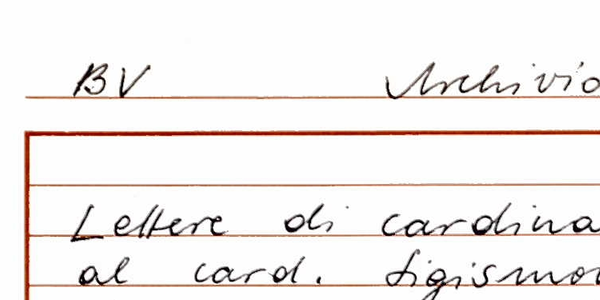 BV Archivio
Lettere di cardina
al card. Sigismon